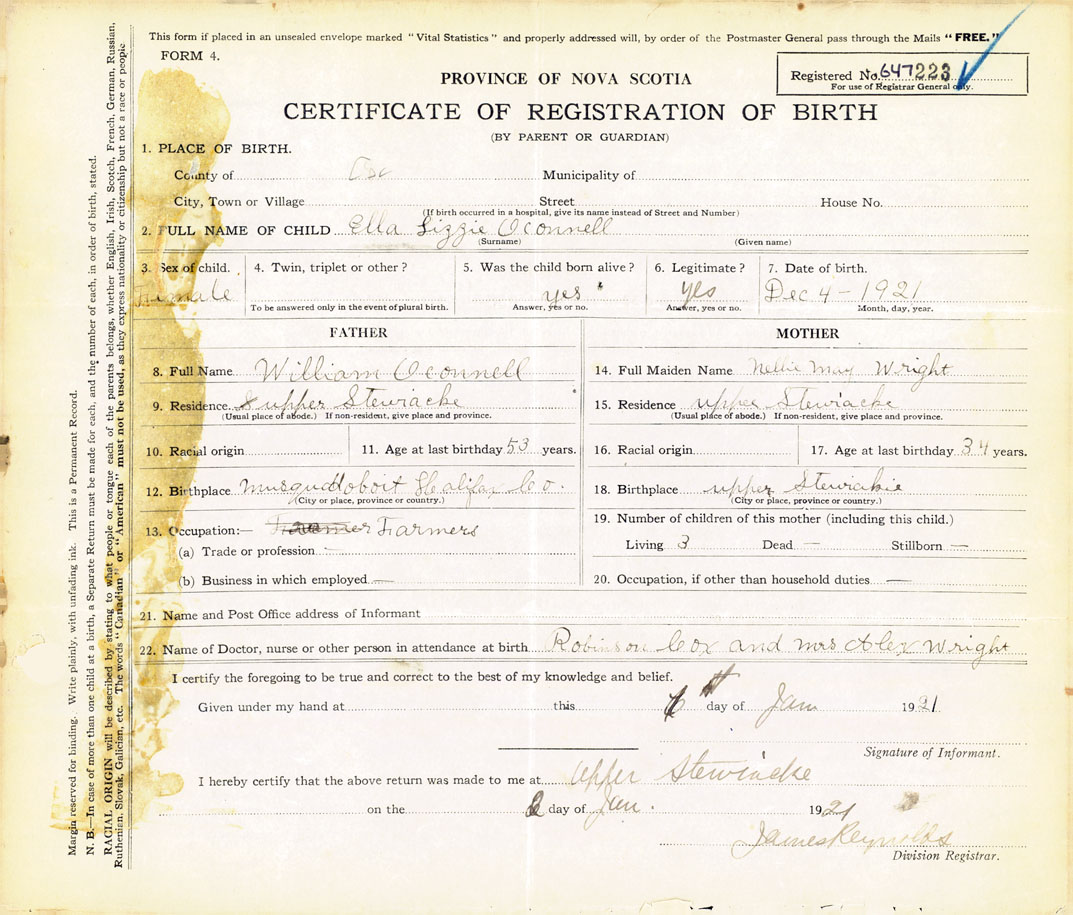 This form if placed in an unsealed envelope marked "Vital Statistics" and properly addressed will, by order of the Postmaster General pass through the Mails "FREE."
FORM 4.
PROVINCE OF NOVA SCOTIA
Registered No. 647223
For use of Registrar General only.
CERTIFICATE OF REGISTRATION OF BIRTH
(BY PARENT OR GUARDIAN)
1. PLACE OF BIRTH.
County of Municipality of
City, Town or Village Street House No.
(If birth occurred in a hospital, give its name instead of Street and Number)
2. FULL NAME OF CHILD Ella Lizzie Oconnell
(Surname) (Given name)
3. Sex of child. 4. Twin, triplet or other? 5. Was the child born alive? 6. Legitimate? 7. Date of birth.
Female yes yes Dec 4 - 1921
To be answered only in the event of plural birth. Answer, yes or no. Answer, yes or no. Month, day, year.
FATHER MOTHER
8. Full Name William Oconnell 14. Full Maiden Name Nellie May Wright
9. Residence upper Stewiacke 15. Residence upper Stewiacke
(Usual place of abode.) If non-resident, give place and province. (Usual place of abode.) If non-resident, give place and province.
10. Racial origin 11. Age at last birthday 53 years. 16. Racial origin 17. Age at last birthday 34 years.
12. Birthplace Halifax Co. 18. Birthplace upper Stewiackie
(City or place, province or country.) (City or place, province or country.)
13. Occupation:— Farmers 19. Number of children of this mother (including this child.)
(a) Trade or profession Living 3 Dead — Stillborn —
(b) Business in which employed — 20. Occupation, if other than household duties —
21. Name and Post Office address of Informant
22. Name of Doctor, nurse or other person in attendance at birth Robinson Cox and mrs Alex Wright
I certify the foregoing to be true and correct to the best of my knowledge and belief.
Given under my hand at this day of Jan 1921
Signature of Informant.
I hereby certify that the above return was made to me at upper Stewiacke
on the day of Jan. 1921
James Reynolds
Division Registrar.
Margin reserved for binding. Write plainly, with unfading ink. This is a Permanent Record.
N. B.—In case of more than one child at a birth, a Separate Return must be made for each, and the number of each, in order of birth, stated.
RACIAL ORIGIN will be described by stating to what people or tongue each of the parents belongs, whether English, Irish, Scotch, French, German, Russian,
Ruthenian, Slovak, Galician, etc. The words "Canadian" or "American" must not be used, as they express nationality or citizenship but not a race or people